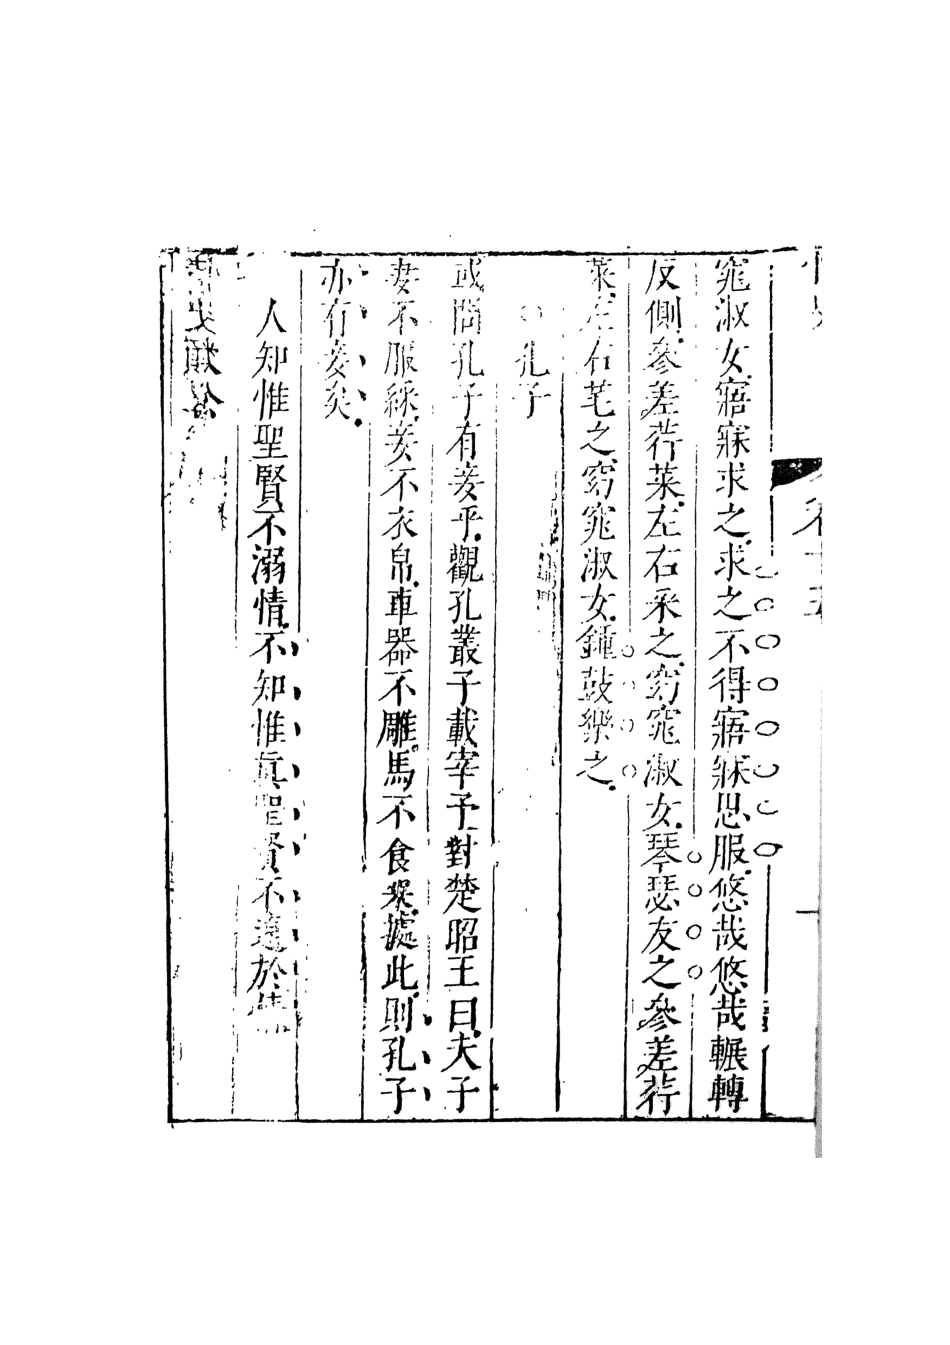 卷十五
窕淑女寤寐求之求之不得寤寐思服悠哉悠哉輾轉
反側參差荇菜左右采之窈窕淑女琴瑟友之參差荇
菜左右芼之窈窕淑女鍾鼓樂之
○孔子
或問孔子有妾乎觀孔叢子載宰予對楚昭王曰夫子
妻不服綵妾不衣帛車器不雕馬不食粟據此則孔子
亦有妾矣
人知惟聖賢不溺情不知惟眞聖賢不遠於情